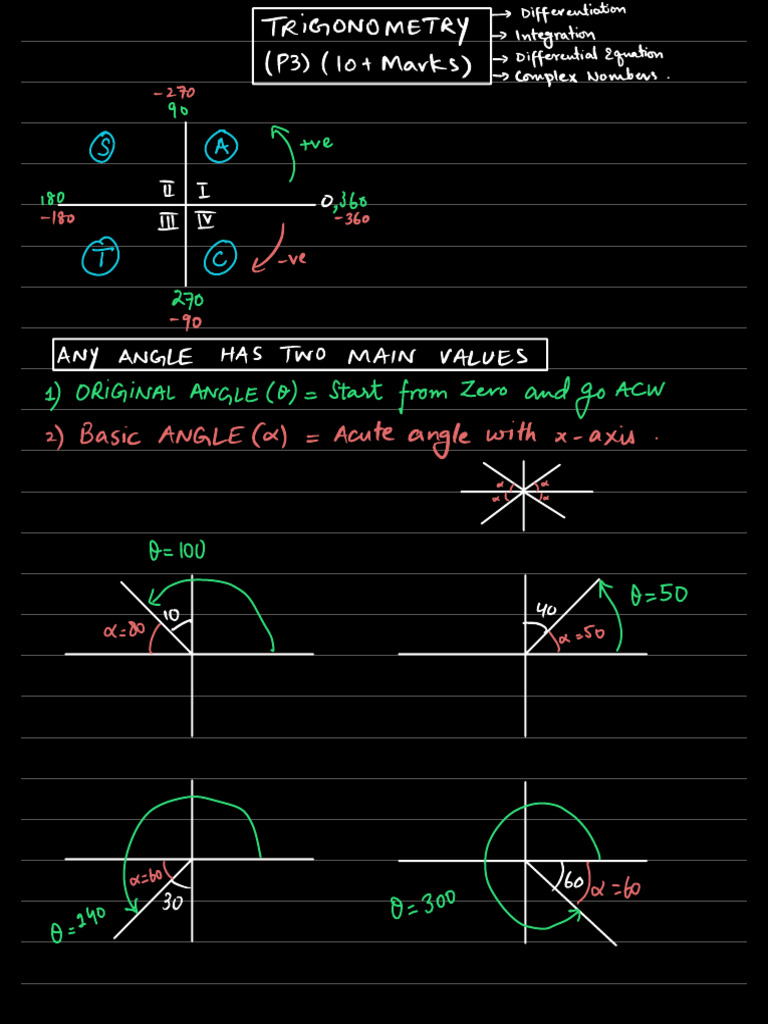 TRIGONOMETRY
(P3) (10+ Marks)
→ Differentiation
→ Integration
→ Differential Equation
→ Complex Numbers.
-270
90
S
A
+ve
II
I
180
0,360
-180
-360
III
IV
T
C
-ve
270
-90
ANY ANGLE HAS TWO MAIN VALUES
1) ORIGINAL ANGLE (θ) = Start from Zero and go ACW
2) Basic ANGLE (α) = Acute angle with x-axis.
α
α
α
α
θ=100
10
α=80
40
θ=50
α=50
α=60
30
θ=240
60
α=60
θ=300